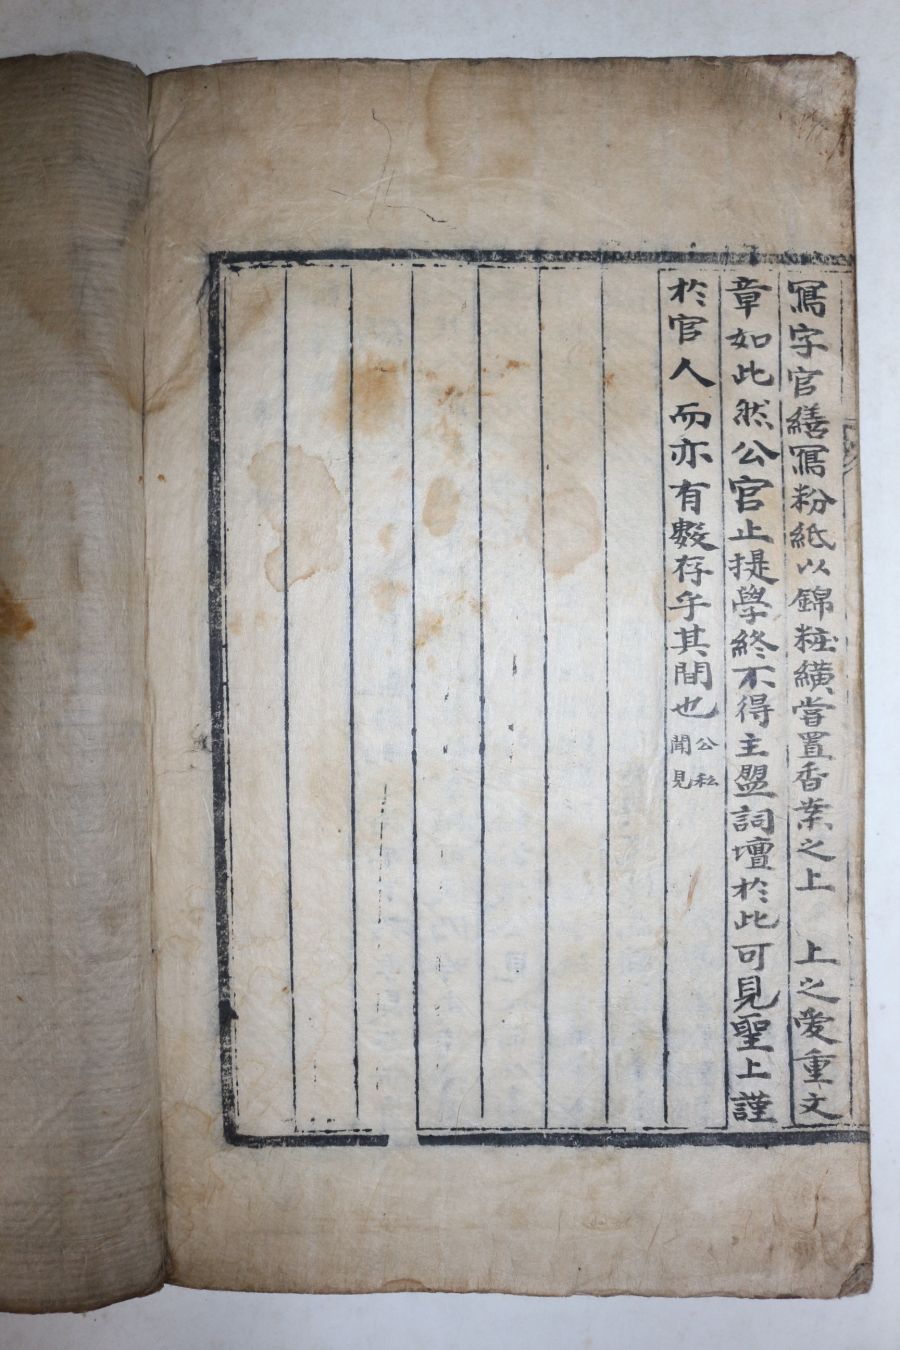 冩字官繕冩粉紙以錦粧䌙甞置香案之上　上之愛重文
章如此然公官止提學終不得主盟詞壇於此可見聖上謹
於官人而亦有數存乎其間也公私
聞見